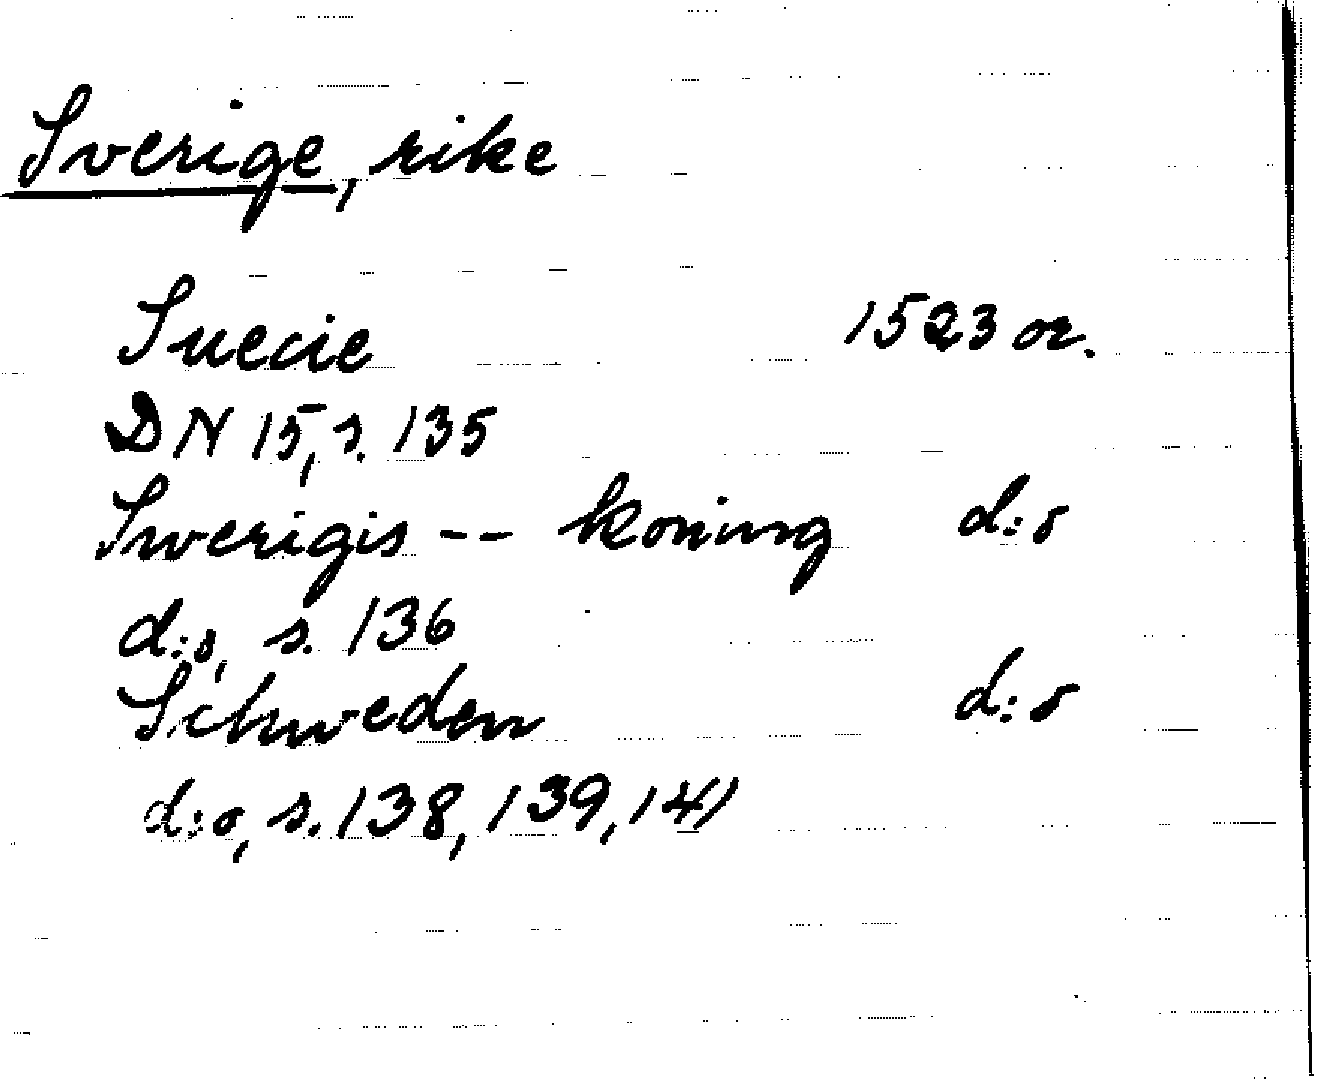 Sverige, rike
Suecie 1523 or.
DN 15, s. 135
Swerigis -- koning d:o
d:o, s. 136
Schweden d:o
d:o, s. 138, 139, 141